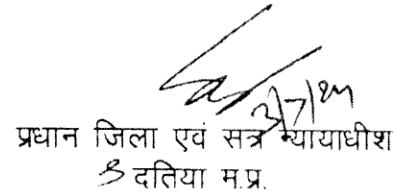 3/7/24
प्रधान जिला एवं सत्र न्यायाधीश
दतिया म.प्र.